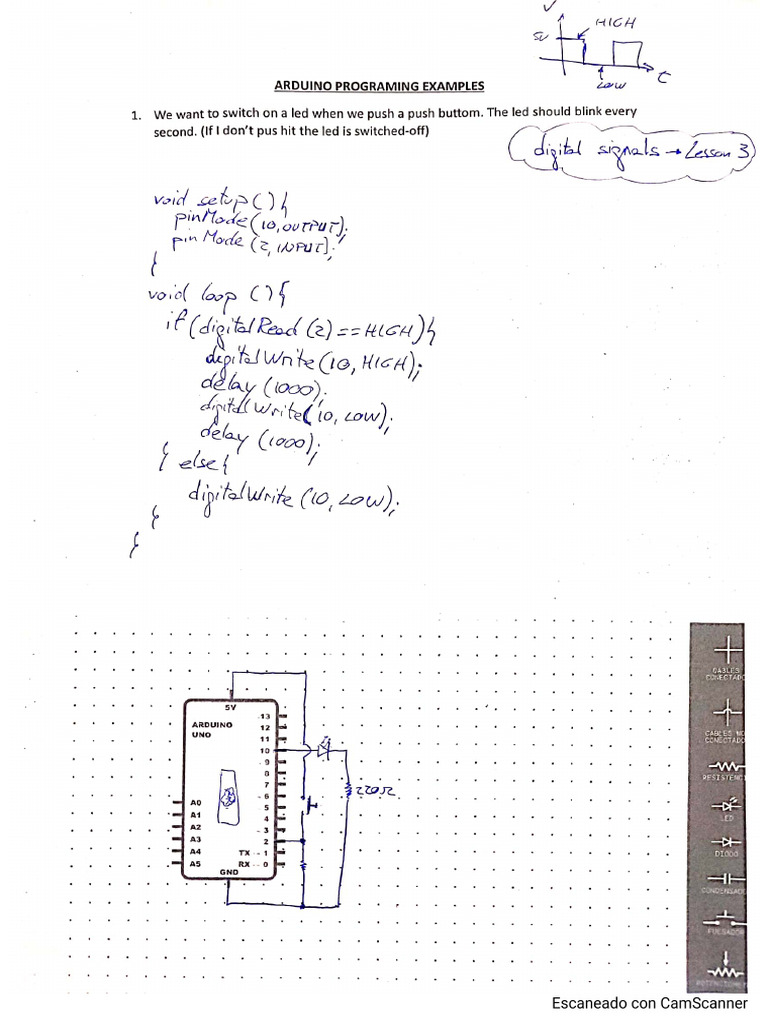 V
HIGH
5V
LOW
t
ARDUINO PROGRAMING EXAMPLES
1. We want to switch on a led when we push a push buttom. The led should blink every
second. (If I don't pus hit the led is switched-off)
digital signals → Lesson 3
void setup(){
pinMode(10,OUTPUT);
pinMode(2,INPUT);
}
void loop (){
if(digitalRead(2)==HIGH){
digitalWrite(10,HIGH);
delay(1000);
digitalWrite(10,LOW);
delay(1000);
} else{
digitalWrite(10,LOW);
}
}
5V
ARDUINO
UNO
13
12
11
10
9
8
7
6
5
4
3
2
TX 1
RX 0
A0
A1
A2
A3
A4
A5
GND
220Ω
CABLES
CONECTADO
CABLES NO
CONECTADO
RESISTENCI
LED
DIODO
CONDENSADO
PULSADOR
POTENCIOME
Escaneado con CamScanner